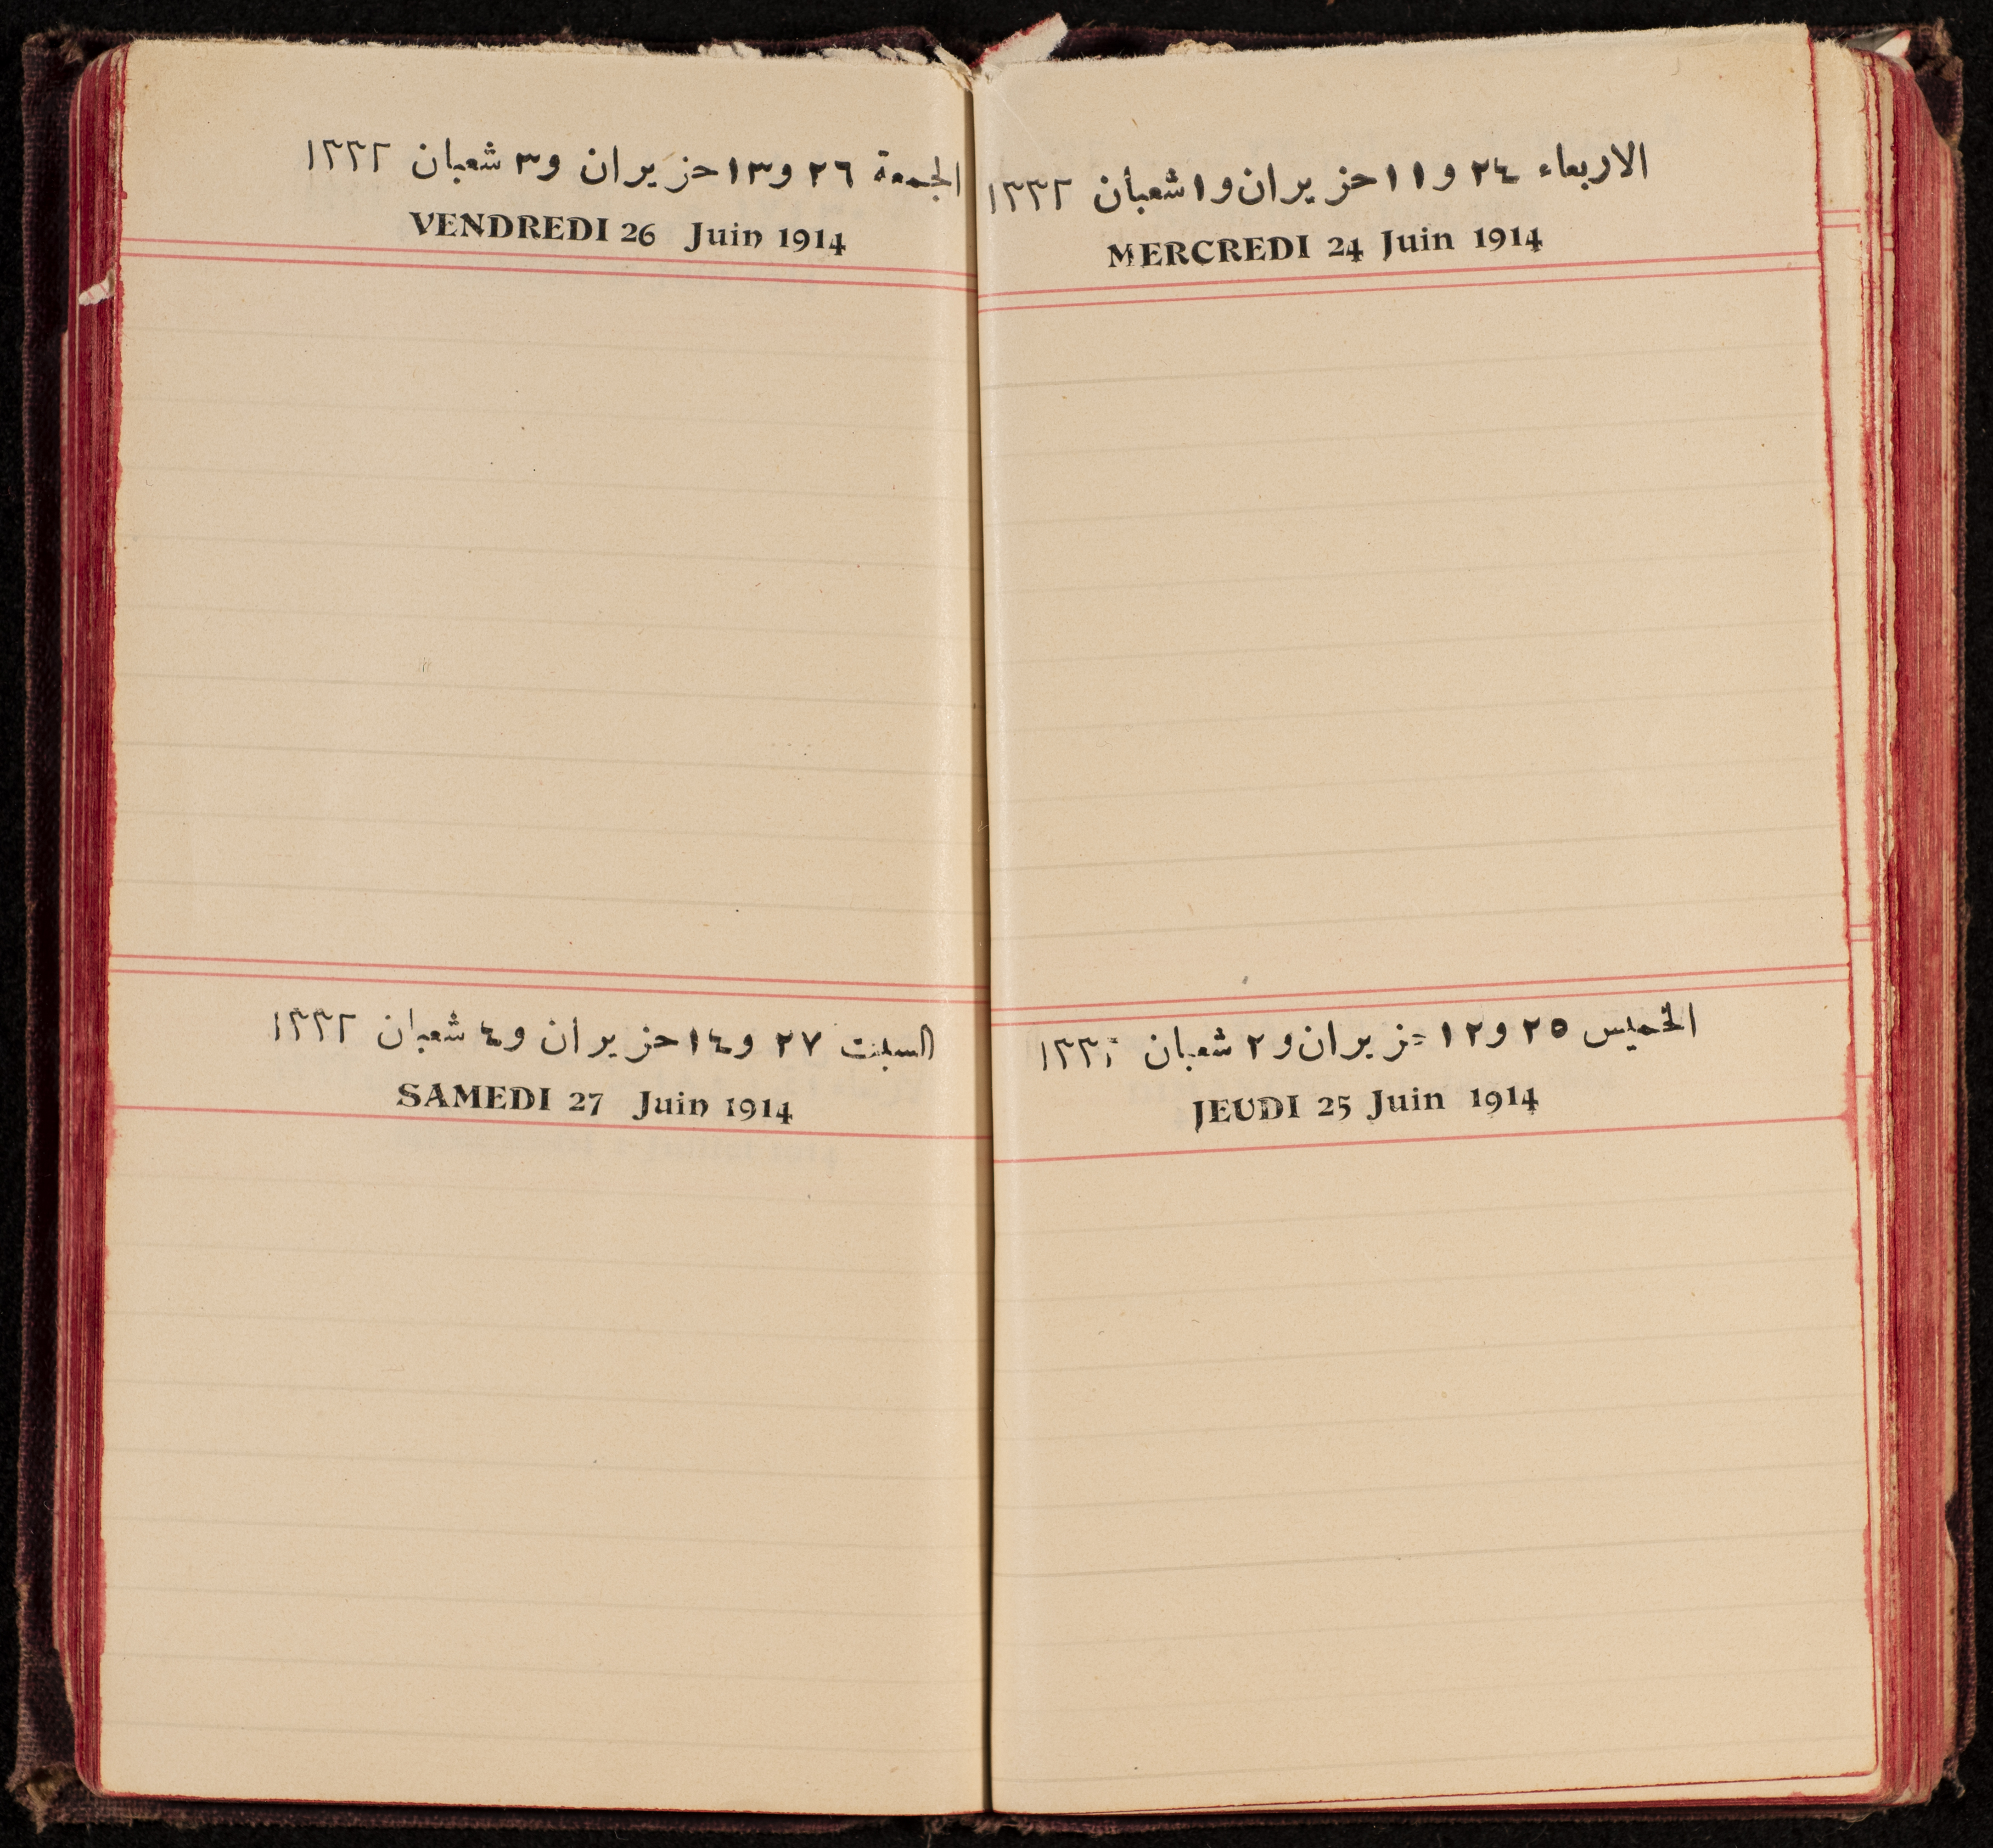 الاربعاء ٢٤ و١١ حزيران و١ شعبان ١٣٣٢
MERCREDI 24 Juin 1914
الخميس ٢٥ و١٢ حزيران و٢ شعبان ١٣٣٢
JEUDI 25 Juin 1914
الجمعة ٢٦ و١٣ حزيران و٣ شعبان ١٣٣٢
VENDREDI 26 Juin 1914
السبت ٢٧ و١٤ حزيران و٤ شعبان ١٣٣٢
SAMEDI 27 Juin 1914